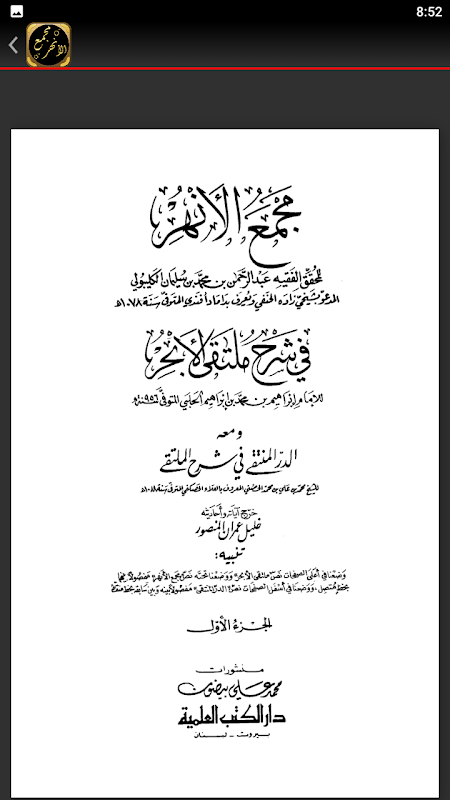 8:52
مجمع
الأنهر
مَجْمَعُ الأَنْهُرْ
للمحقق الفقيه عبد الرحمن بن محمد بن سليمان الكليبولي
المدعو بشيخي زاده الحنفي ويعرف بداماد أفندي المتوفى سنة ١٠٧٨هـ
في شرح ملتقى الأبحر
للإمام إبراهيم بن محمد بن إبراهيم الحلبي المتوفى ٩٥٦ سنة هـ
ومعه
الدر المنتقى في شرح الملتقى
للشيخ محمد بن علي بن محمد الحصني المعروف بالعلاء الحصكفي المتوفى سنة ١٠٨٨هـ
خرج آياته وأحاديثه
خليل عمران المنصور
تنبيه:
وضعنا في أعلى الصفحات نص ملتقى الأبحر ووضعنا تحته نص مجمع الأنهر مفصولاً بينهما
بخط متصل، ووضعنا في أسفل الصفحات نص الدر المنتقى مفصولاً بينه وبين سابقه بخط منقط
الجزء الأول
منشورات
محمد علي بيضون
دار الكتب العلمية
بيروت - لبنان